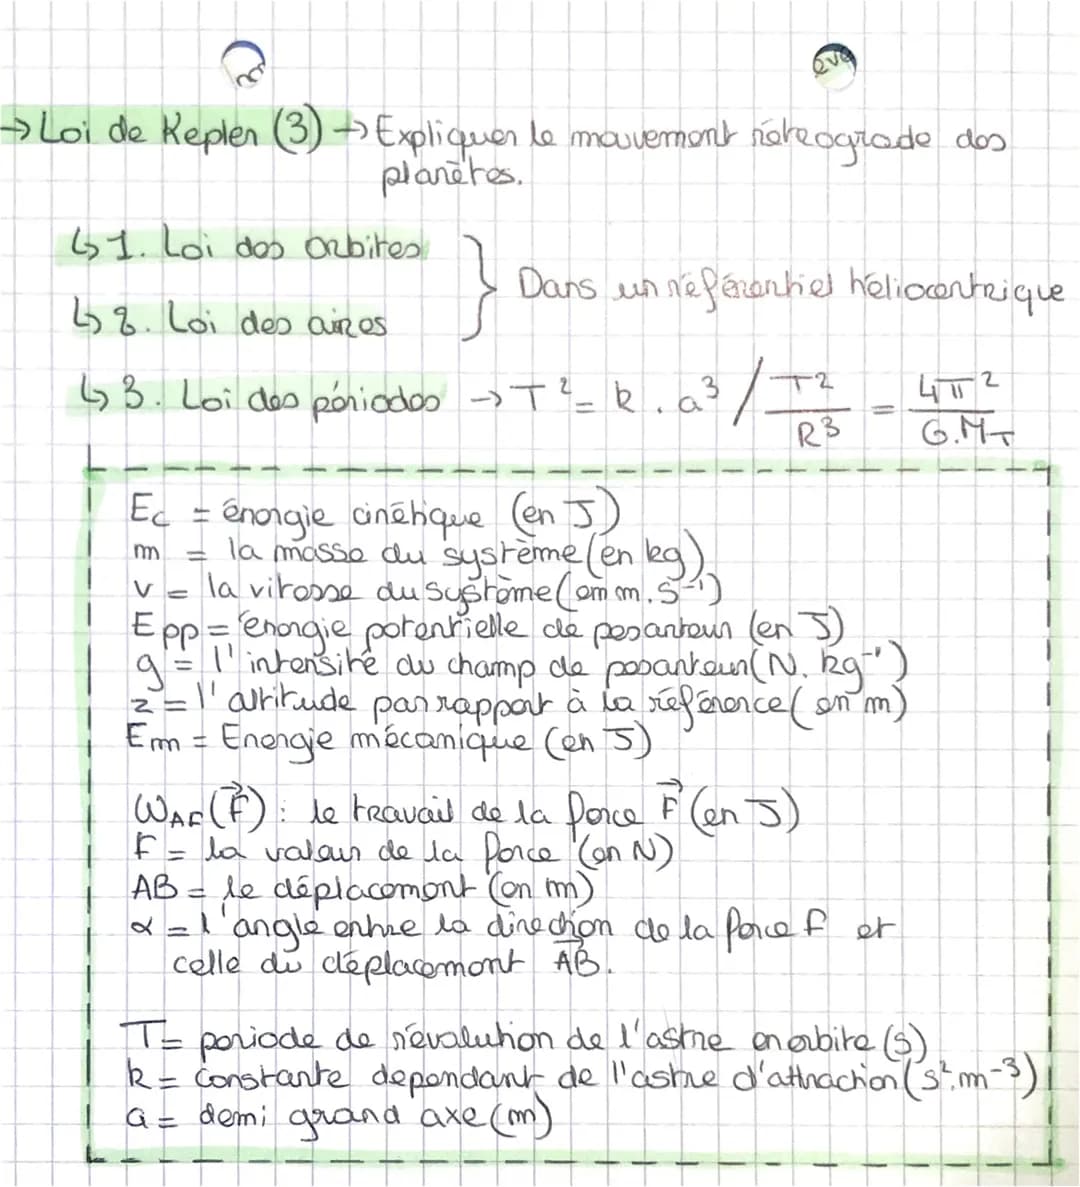 → Loi de Kepler (3) → Expliquer le mouvement rétrograde des
planètes.
↳ 1. Loi des orbites
↳ 2. Loi des aires
} Dans un référentiel héliocentrique
↳ 3. Loi des périodes → T² = k . a³ / T²/R³ = 4π²/G.M_T
Ec = énergie cinétique (en J)
m = la masse du système (en kg)
v = la vitesse du système (en m.s⁻¹)
Epp = énergie potentielle de pesanteur (en J)
g = l'intensité du champ de pesanteur (N.kg⁻¹)
z = l'altitude par rapport à la référence (en m)
Em = Energie mécanique (en J)
W_AF(F⃗) : le travail de la force F⃗ (en J)
F = la valeur de la force (en N)
AB = le déplacement (en m)
α = l'angle entre la direction de la force f et
celle du déplacement AB.
T = periode de révolution de l'astre en orbite (s)
k = constante dependant de l'astre d'attraction (s².m⁻³)
a = demi grand axe (m)